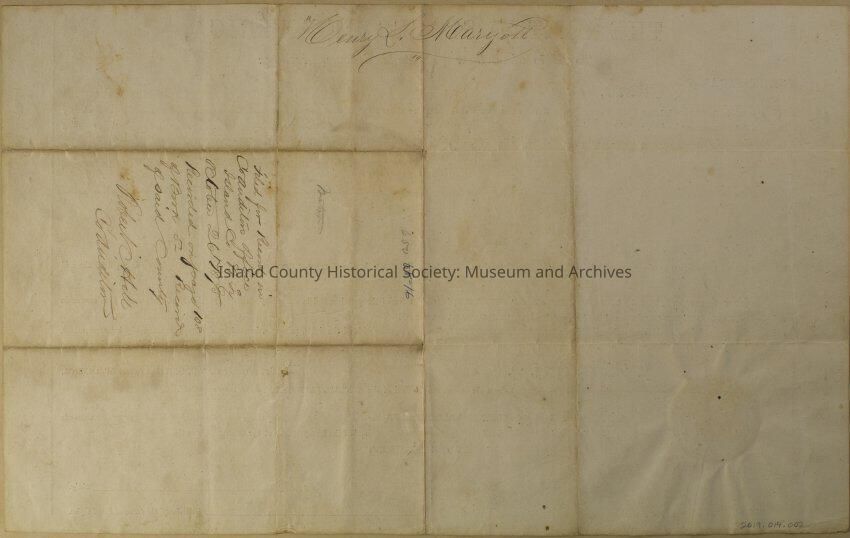 "Henry S. Maryott"
Filed for Record in
Co Auditors Office
Island Co
October 26
Recorded on page 108
of Record
of said County
Robert Hill
Co Auditor
Island County Historical Society: Museum and Archives
2019.014.002